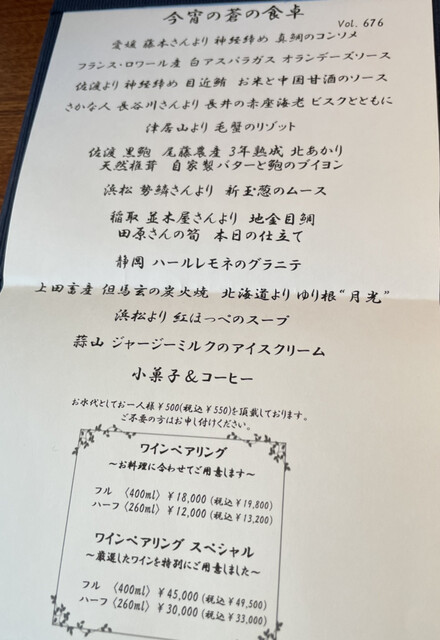 今宵の蒼の食卓
Vol. 676
愛媛 藤本さんより 神経締め 真鯛のコンソメ
フランス・ロワール産 白アスパラガス オランデーズソース
佐渡より 神経締め 目近鮪 お米と中国甘酒のソース
さかな人 長谷川さんより 長井の赤座海老 ビスクとともに
津居山より 毛蟹のリゾット
佐渡 黒鮑 尾藤農産 3年熟成 北あかり
天然椎茸 自家製バターと鮑のブイヨン
浜松 勢鱗さんより 新玉葱のムース
稲取 並木屋さんより 地金目鯛
田原さんの筍 本日の仕立て
静岡 ハールレモネのグラニテ
上田畜産 但馬玄の炭火焼 北海道より ゆり根"月光"
浜松より 紅ほっぺのスープ
蒜山 ジャージーミルクのアイスクリーム
小菓子&コーヒー
お水代としてお一人様¥500(税込¥550)を頂戴しております。
ご不要の方はお申し付けください。
ワインペアリング
～お料理に合わせてご用意します～
フル 〈400ml〉 ¥18,000 (税込¥19,800)
ハーフ〈260ml〉 ¥12,000 (税込¥13,200)
ワインペアリング スペシャル
～厳選したワインを特別にご用意しました～
フル 〈400ml〉 ¥45,000 (税込¥49,500)
ハーフ〈260ml〉 ¥30,000 (税込¥33,000)